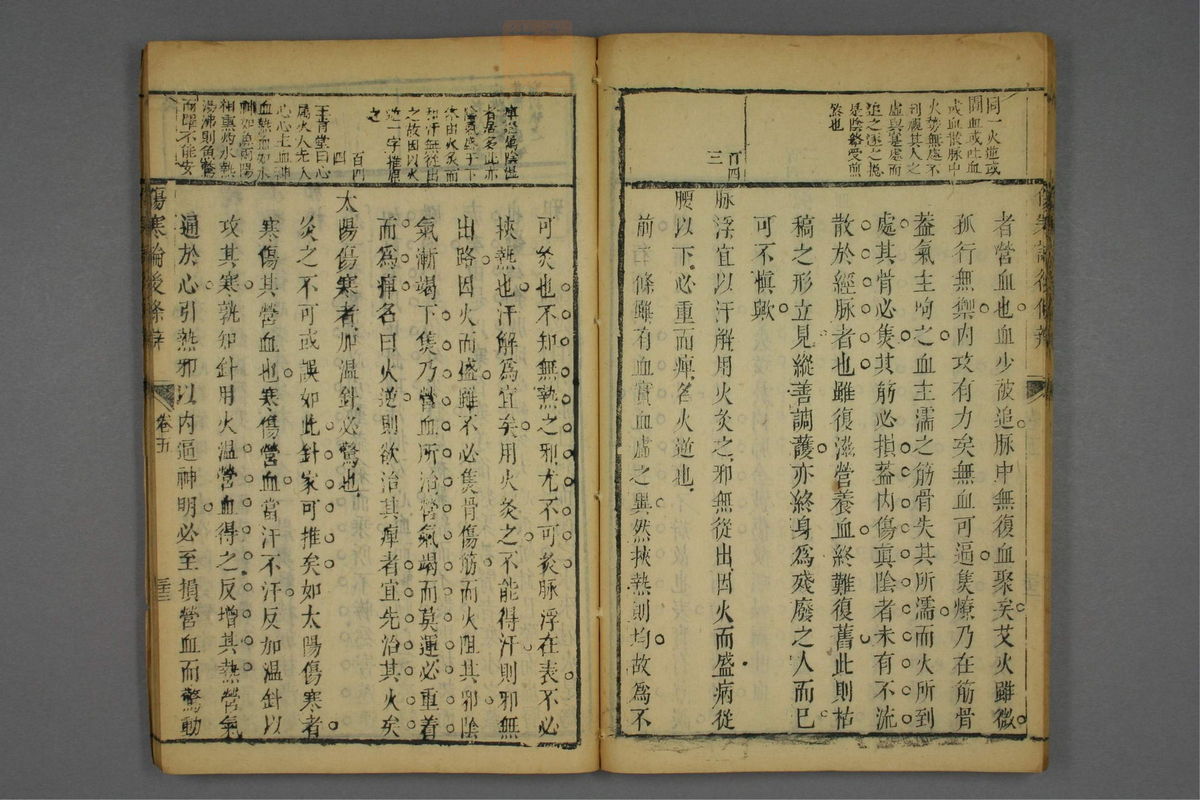 同一火逆或
圊血或吐血
或血散脉中
火勢無處不
到視其人之
虛與寔處而
追之逐之摠
是陰絡受煎
熬也
者營血也血少被追脉中無復血聚矣艾火雖微
孤行無禦内攻有力矣無血可逼焦燎乃在筋骨
蓋氣主呴之血主濡之筋骨失其所濡而火所到
處其骨必焦其筋必損蓋内傷真陰者未有不流
散於經脉者也雖復滋營養血終難復舊此則枯
稿之形立見縱善調護亦終身為殘廢之人而已
可不慎歟
百四
三
脉浮宜以汗解用火灸之邪無從出因火而盛病從
腰以下必重而痺名火逆也
前右條雖有血實血虛之異然挾熱則均故為不
傷寒論後條辨
可灸也不知無熱之邪尤不可灸脉浮在表不必
挾熱也汗解為宜矣用火灸之不能得汗則邪無
出路因火而盛雖不必焦骨傷筋而火阻其邪陰
氣漸竭下焦乃營血所治營氣竭而莫運必重着
而為痺名曰火逆則欲治其痺者宜先治其火矣
者居多此亦
陰氣盛于下
而汗無從出
之故因以火
逆一字推原
之
百四
四
太陽傷寒者加温針必驚也
灸之不可或誤如此針家可推矣如太陽傷寒者
寒傷其營血也寒傷營血當汗不汗反加温針以
攻其寒孰知針用火温營血得之反增其熱營氣
通於心引熱邪以内逼神明必至損營血而驚動
王肯堂曰心
屬火火先入
心心主血神
血熱如水
神如魚
相熏灼水熱
湯沸則魚驚
而躍不能安
傷寒論後條辨
卷五